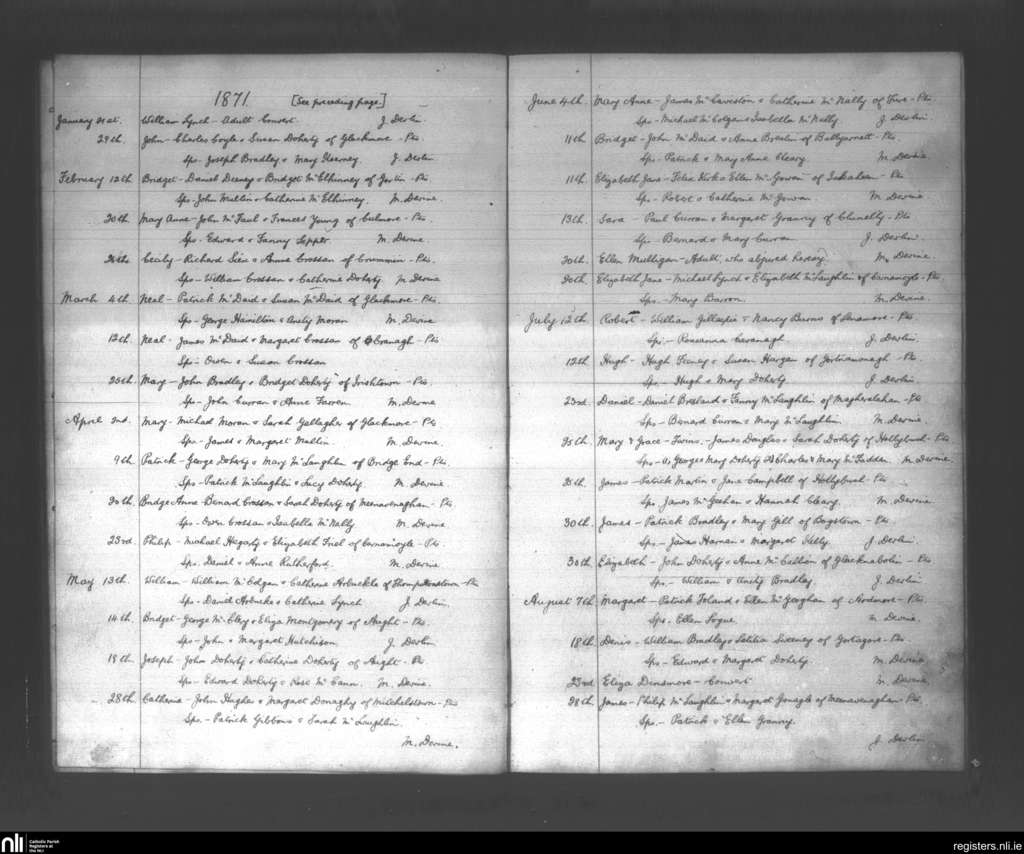 1871. [See preceding page]
January 21st. William Lynch - Adult Convert. J. Devlin.
29th. John - Charles Coyle & Susan Doherty of Glackmore - Pts
Sps. Joseph Bradley & Mary Kearney. J. Devlin
February 12th Bridget - Daniel Deeney & Bridget McElhinney of - Pts
Sps - John Mullin & Catherine McElhinney. M. Devine.
20th Mary Anne - John McFaul & Frances Young of Culmore - Pts
Sps - Edward & Fanny M. Devine.
Cecily - Richard & Anne Crossan of Crummin - Pts.
Sps - William Crossan & Catherine Doherty. M. Devine
March 4th Neal - Patrick McDaid & Susan McDaid of Glackmore - Pts.
Sps - George Hamilton & Moran M. Devine
12th Neal - James McDaid & Margaret Crossan of - Pts
Sps - Owen & Susan Crossan
25th Mary - John Bradley & Bridget Doherty of Irishtown - Pts.
Sps - John Curran & Anne Farren M. Devine
April 2nd. Mary - Michael Moran & Sarah Gallagher of Glackmore - Pts.
Sps - James & Margaret Mullin. M. Devine.
9th Patrick - George Doherty & Mary McLaughlin of Bridge End - Pts.
Sps - Patrick McLaughlin & Lucy Doherty. M. Devine
20th Bridget Anne - Benard Crossan & Sarah Doherty of - Pts
Sps - Owen Crossan & Isabella McNally. M. Devine
23rd. Philip - Michael Hegarty & Elizabeth Friel of - Pts.
Sps. Daniel & Annie Rutherford. M. Devine
May 13th. William - William McColgan & Catherine Arbuckle of Thompsonstown - Pts
Sps - David Arbuckle & Catherine Lynch J. Devlin.
14th Bridget - George McCloy & Eliza Montgomery of Aught - Pts
Sps - John & Margaret Hutchison. J. Devlin
19th Joseph - John Doherty & Catherine Doherty of Aught - Pts
Sps - Edward Doherty & Rose McCann. M. Devine.
28th Catherine - John Hughes & Margaret Donaghy of Mitchelstown - Pts
Sps. - Patrick Gibbons & Sarah McLaughlin.
M. Devine.
June 4th. Mary Anne - James McCaveston & Catherine McNally of - Pts
Sps - Michael McColgan & Isabella McNally. J. Devlin.
11th Bridget - John McDaid & Anne Breslin of Ballyarnett - Pts.
Sps - Patrick & Mary Anne Cleary. M. Devine.
11th Elizabeth Jane - Felix Kirk & Ellen McGowan of Iskaheen - Pts
Sps - Robert & Catherine McGowan M. Devine
13th Sara - Paul Curran & Margaret Granny of - Pts
Sps - Barnard & Mary Curran J. Devlin.
20th Ellen Mulligan - Adult, who abjured heresy. M. Devine
20th. Elizabeth Jane - Michael Lynch & Elizabeth McLaughlin of - Pts.
Sps - Mary Barron. M. Devine
July 12th Robert - William Gillespie & Nancy Burns of - Pts
Sps - Roseanna Cavanagh. J. Devlin.
12th Hugh - Hugh Feeney & Susan Hargan of - Pts.
Sps - Hugh & Mary Doherty J. Devlin
23rd. Daniel - Daniel Bresland & Fanny McLaughlin of - Pts
Sps - Benard Curran & Mary McLaughlin. M. Devine.
25th. Mary & Grace - Twins. - James Douglas & Sarah Doherty of Hollybush - Pts.
Sps - George & Mary Doherty Charles & Mary McFadden. M. Devine.
25th. James - Patrick Martin & Jane Campbell of Hollybush - Pts
Sps. James McGeehan & Hannah Cleary. M. Devine
30th. James - Patrick Bradley & Mary Gill of Bogstown - Pts.
Sps. - James Harnan & Margaret Kelly. J. Devlin.
30th Elizabeth - John Doherty & Anne McCallion of - Pts
Sps - William & Bradley. J. Devlin
August 7th Margaret - Patrick Toland & Ellen McGeeghan of Ardmore - Pts
Sps. Ellen Logue M. Devine.
18th Denis - William Bradley & Letitia Sweeney of - Pts
Sps - Edward & Margaret Doherty M. Devine
23rd Eliza Dinsmore - Convert M. Devine
28th James - Philip McLaughlin & Margaret of - Pts
Sps. - Patrick & Ellen Granny.
J. Devlin
nli Catholic Parish Registers at the NLI
registers.nli.ie